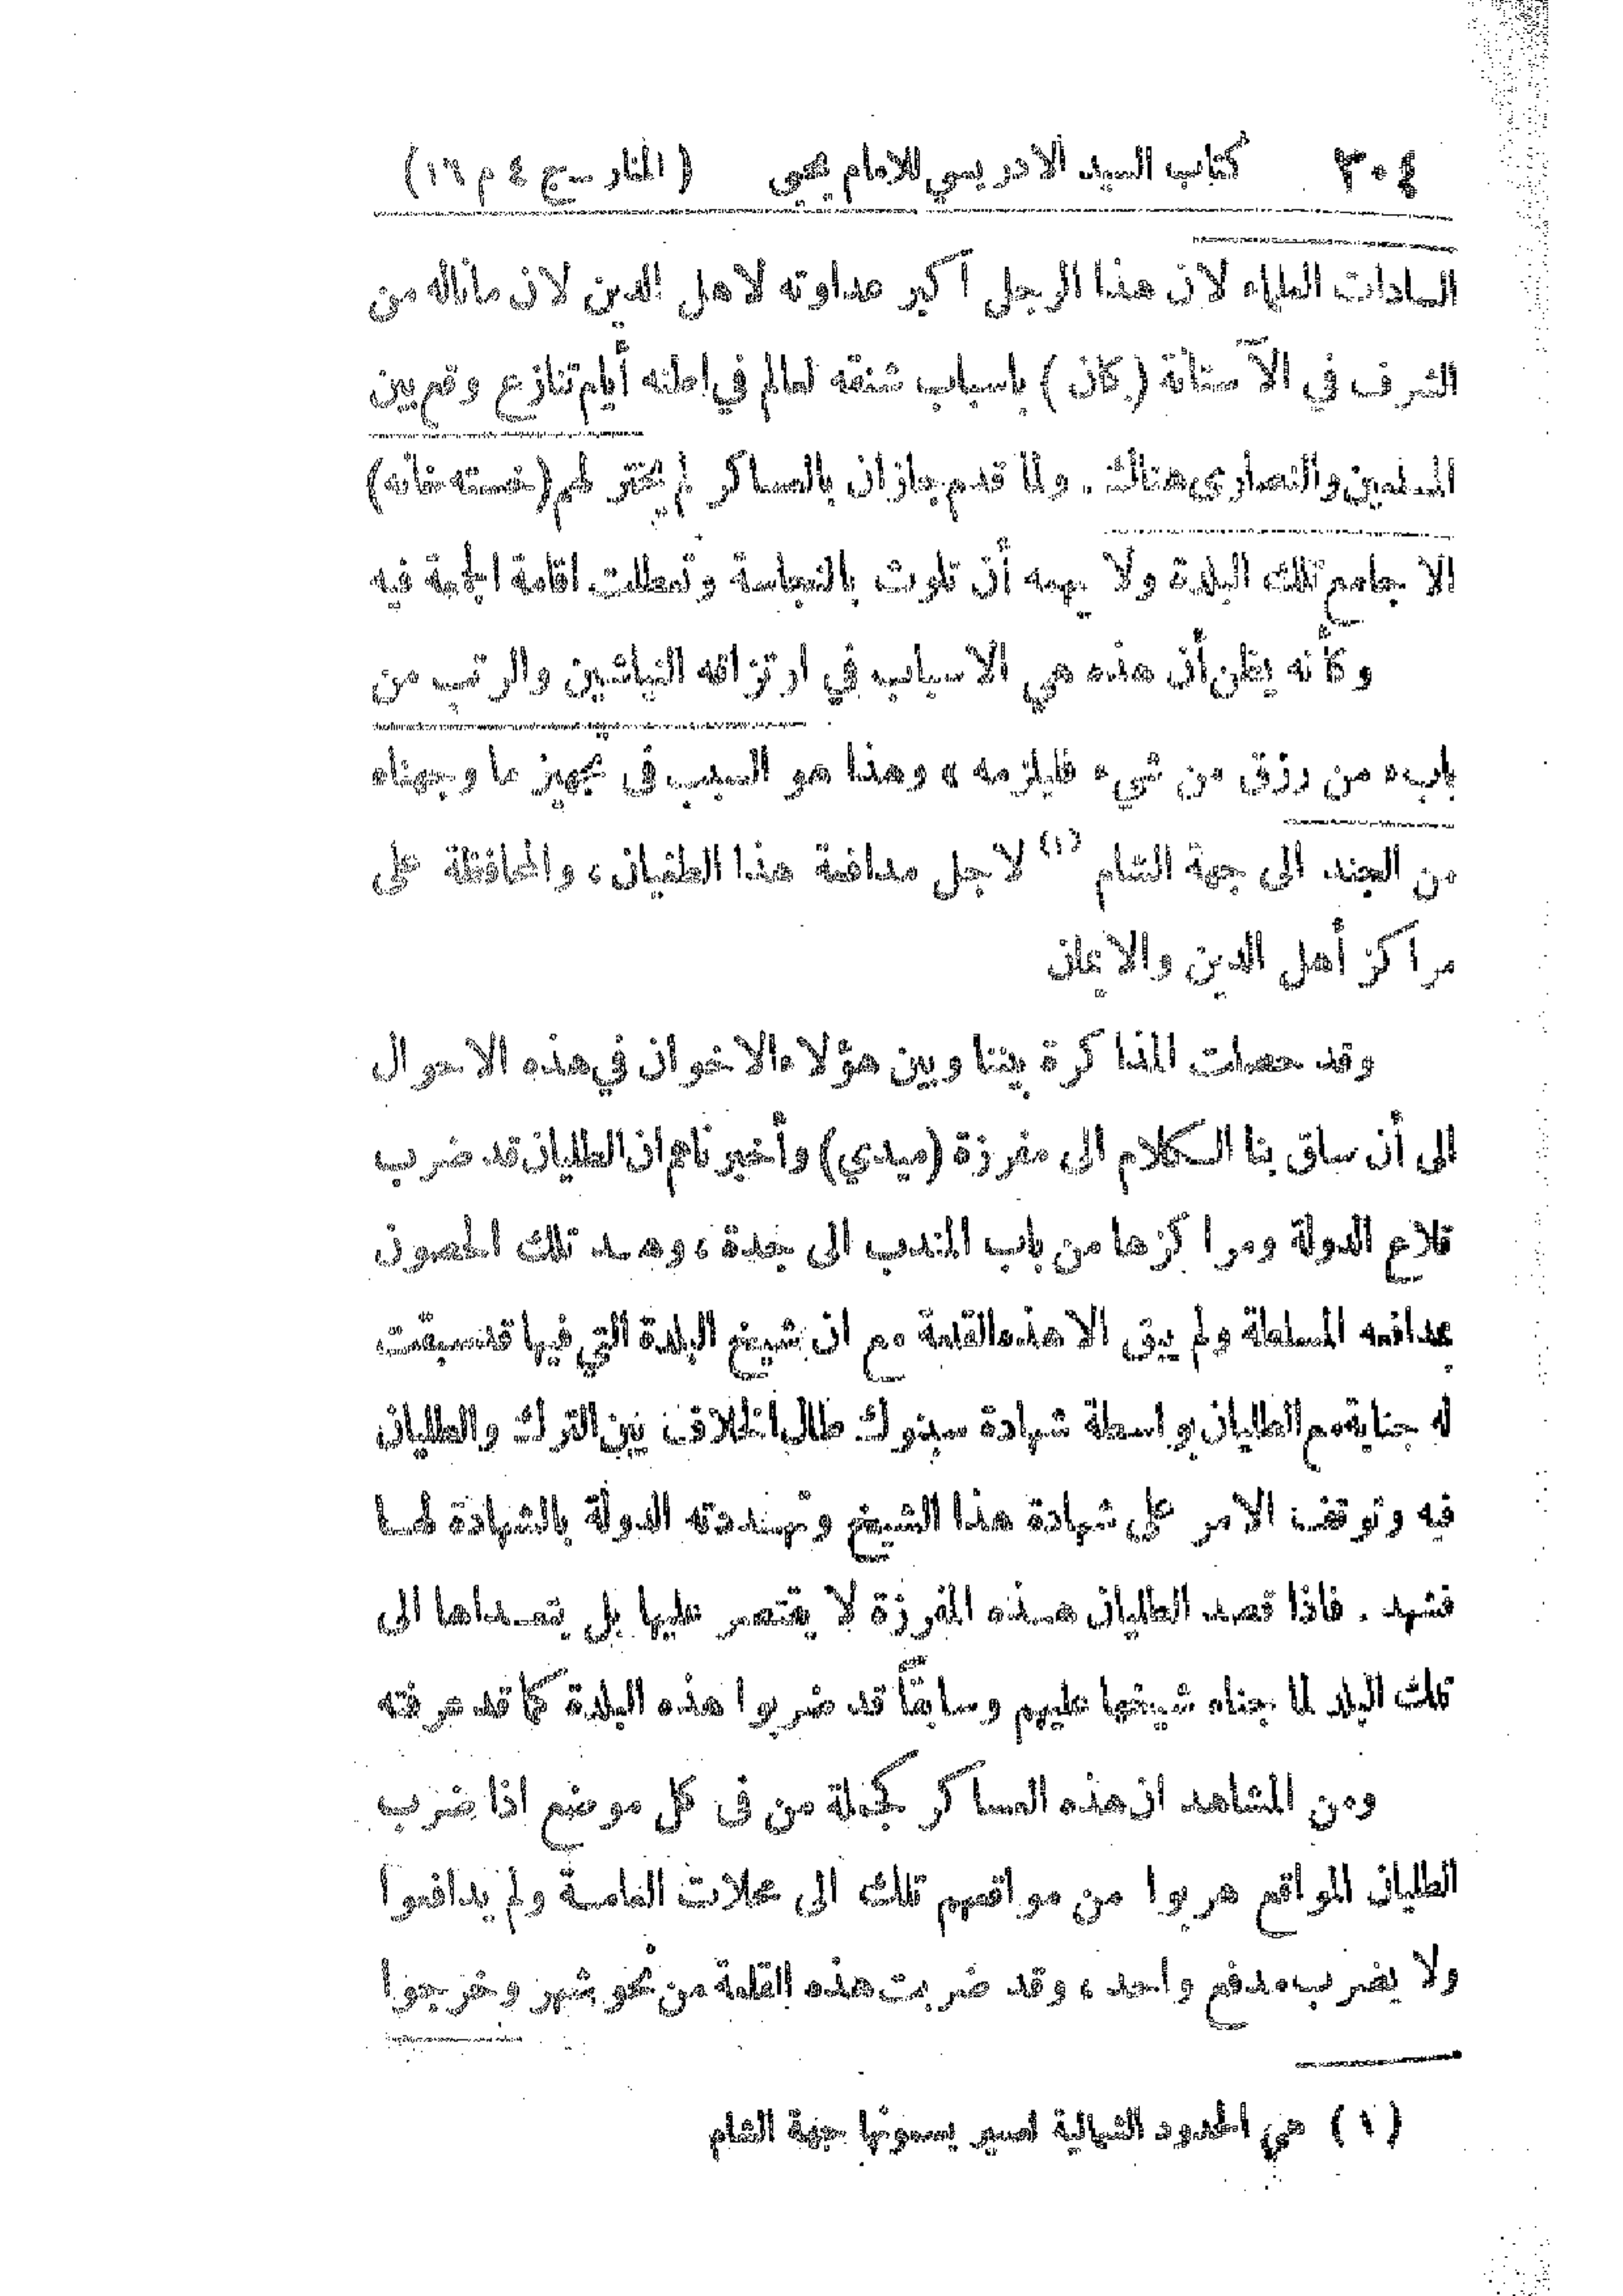 ٣٠٤ كتاب السيد الادريسي للامام يحيى (المنار ــ ج ٤ م ١٦)
السادات العلماء لان هذا الرجل أكبر عداوته لاهل الدين لان ماناله من
الشرف في الآستانة (كان) بأسباب شنقه لعالم في اطنه أيام تنازع وقع بين
المسلمين والنصارى هناك . ولما قدم جازان بالعساكر لم يختر لهم (خسته خانه)
الا جامع تلك البلدة ولا يهمه أن تلوث بالنجاسة وتعطلت اقامة الجمعة فيه
وكأنه يظن أن هذه هي الاسباب في ارتزاقه النياشين والرتب من
بابه من رزق من شيء فليلزمه » وهذا هو السبب في تجهيز ما وجهناه
من الجند الى جهة الشام (١) لاجل مدافعة هذا الطغيان ، والمحافظة على
مراكز أهل الدين والايمان
وقد حصلت المذاكرة بيننا وبين هؤلاء الاخوان في هذه الاحوال
الى أن ساق بنا الكلام الى مفرزة (ميدي) وأخبرناهم ان الطليان قد ضرب
قلاع الدولة ومراكزها من باب المندب الى جدة ، وهد تلك الحصون
بمدافعه المسلطة ولم يبق الا هذه القلعة مع ان شيخ البلدة التي فيها قد سبقت
له جناية مع الطليان بواسطة شهادة سنبوك طال الخلاف بين الترك والطليان
فيه وتوقف الامر على شهادة هذا الشيخ وتهددته الدولة بالشهادة لهــا
فشهد . فاذا قصد الطليان هــذه المفرزة لا يقتصر عليها بل يتعــداها الى
تلك البلد لما جناه شيخها عليهم وسابقًا قد ضربوا هذه البلدة كما قد عرفته
ومن المشاهد ان هذه العساكر كجملة من في كل موضع اذا ضرب
الطليان المواقع هربوا من مواقعهم تلك الى محلات العامــة ولم يدافعوا
ولا بضرب مدفع واحد ، وقد ضربت هذه القلعة من نحو شهر وخرجوا
(١) هي الحدود الشمالية لعسير يسمونها جهة الشام